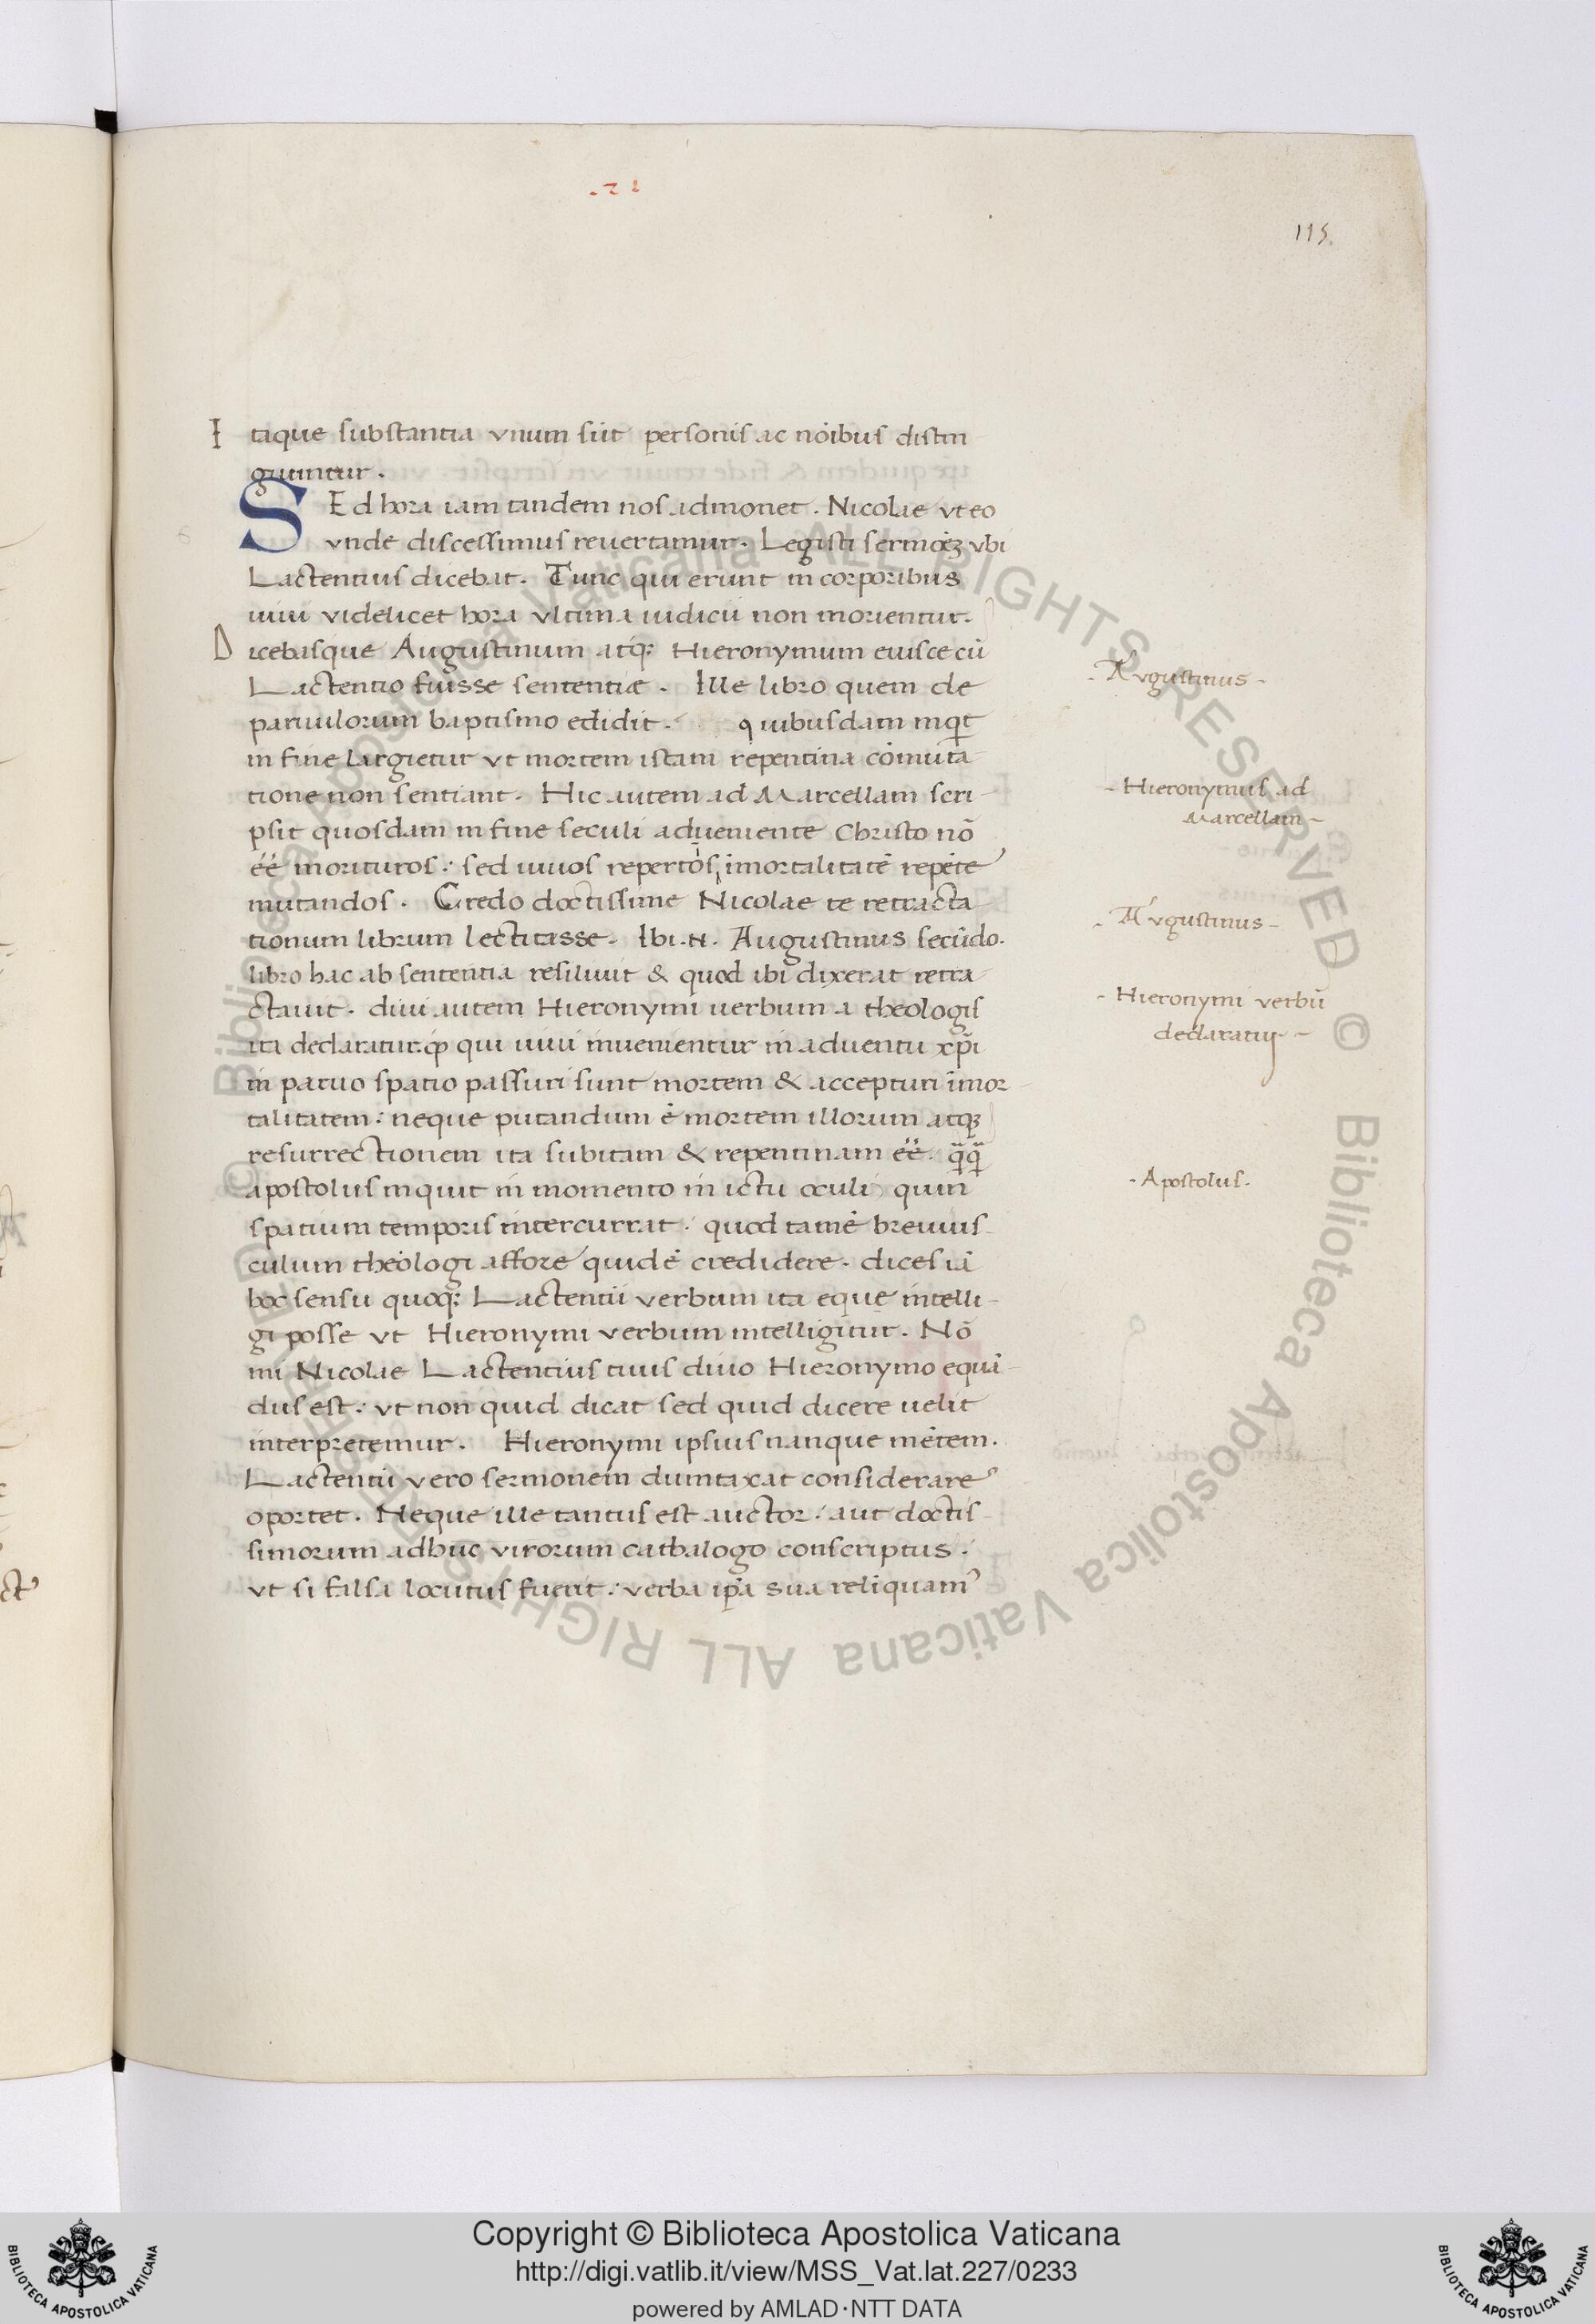 .21
115.
Itaque substantia vnum sūt personis ac nōibus distin
guuntur.
SEd hora iam tandem nos admonet. Nicolae vt eo
vnde discessimus reuertamur. Legisti sermōeʒ vbi
Lactentius dicebat. Tunc qui erunt in corporibus
uiui videlicet hora vltima iudicii non morientur.
Dicebasque Augustinum atqꝫ Hieronymum euisce cū
Lactentio fuisse sententiæ. Ille libro quem de
paruulorum baptismo edidit. quibusdam inqͥt
in fine largietur vt mortem istam repentina cōmuta
tione non sentiant. Hic autem ad Marcellam scri-
psit quosdam in fine seculi adueniente Christo nō
eē morituros: sed uiuos repertos īmortalitatē repēte
mutandos. Credo doctissime Nicolae te retracta
tionum librum lectitasse. Ibi .N. Augustinus secūdo.
libro hac ab sententia resiliuit & quod ibi dixerat retra
ctauit. diui autem Hieronymi uerbum a theologis
ita declaratur: ꝙ qui uiui inuenientur in aduentu xp̄i
in paruo spatio passuri sunt mortem & accepturi īmor
talitatem: neque putandum ē mortem illorum atqꝫ
resurrectionem ita subitam & repentinam eē. qͣqͣ
apostolus inquit in momento in ictu oculi quin
spatium temporis intercurrat: quod tamē breuius-
culum theologi affore quidē credidere. dices iā
hoc sensu quoqꝫ Lactentii verbum ita eque intelli-
gi posse vt Hieronymi verbum intelligitur. Nō
mi Nicolae Lactentius tuus diuo Hieronymo equā
dus est: vt non quid dicat sed quid dicere uelit
interpretemur. Hieronymi ipsius nanque mētem.
Lactentii vero sermonem dumtaxat considerare
oportet. Neque ille tantus est auctor: aut doctis-
simorum adhuc virorum cathalogo conscriptus.
vt si falsa locutus fuerit: verba ip̄a sua reliquam
- Augustinus -
- Hieronymus ad
Marcellam -
- Augustinus -
- Hieronymi verbū
declaratur -
- Apostolus.
© Biblioteca Apostolica Vaticana ALL RIGHTS RESERVED © Biblioteca Apostolica Vaticana ALL RIGHTS RESERVED
Copyright © Biblioteca Apostolica Vaticana
http://digi.vatlib.it/view/MSS_Vat.lat.227/0233
powered by AMLAD·NTT DATA
BIBLIOTECA APOSTOLICA VATICANA
BIBLIOTECA APOSTOLICA VATICANA